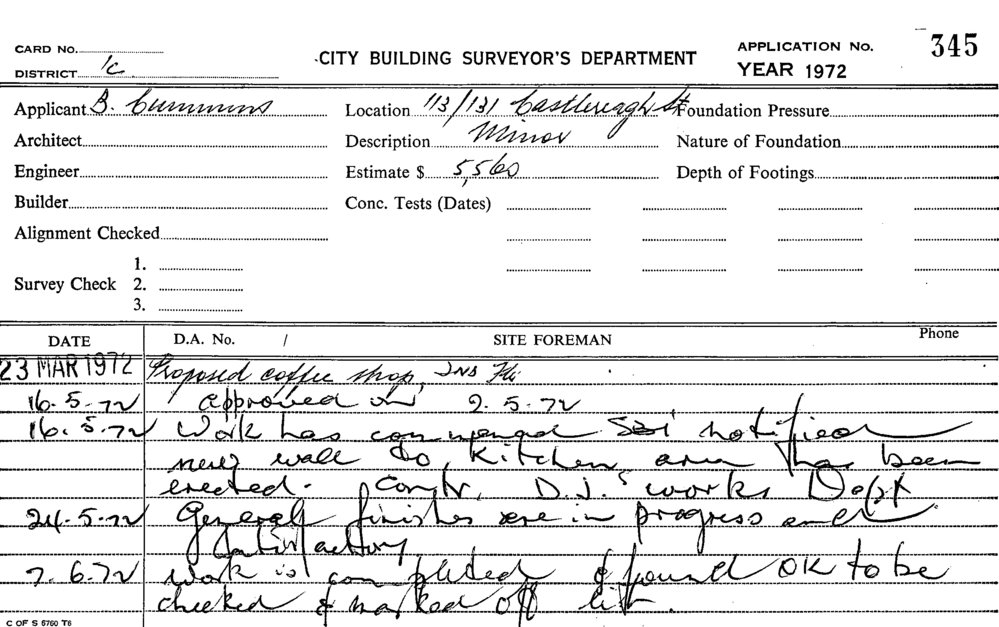 CARD No. 
DISTRICT 1c
CITY BUILDING SURVEYOR'S DEPARTMENT
APPLICATION No. 345
YEAR 1972
Applicant B. Cummins
Location 113/131 Castlereagh St
Foundation Pressure
Architect
Description Minor
Nature of Foundation
Engineer
Estimate $ 5,560
Depth of Footings
Builder
Conc. Tests (Dates)
Alignment Checked
1.
Survey Check 2.
3.
DATE
D.A. No. /
SITE FOREMAN
Phone
23 MAR 1972 Proposed coffee shop,
16.5.72 approved on 2.5.72
16.5.72 Work has commenced notified
new wall to kitchen area has been
erected. Contr. D.J.'s works Dept
24.5.72 General finishes are in progress and
satisfactory
7.6.72 Work is completed & found OK to be
checked & marked off list.
C OF S 5760 T6